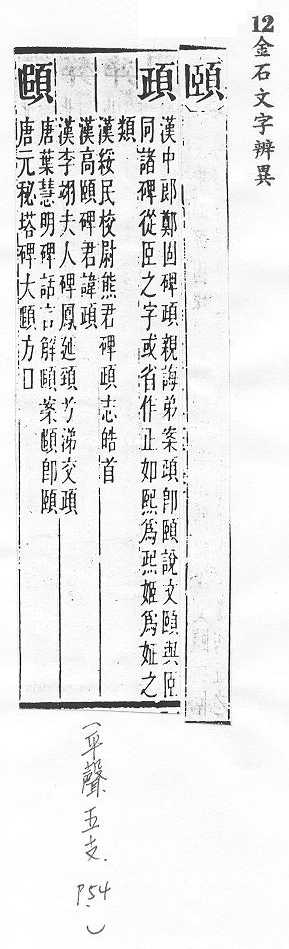 12金石文字辨異
頤
𩑺
漢中郎鄭固碑𩑺親誨弟案𩑺即頤說文頤與𦣞
同諸碑從𦣞之字或省作正如熙為𤋮姬為姃之
類
漢綏民校尉熊君碑𩑺志皓首
漢高頤碑君諱𩑺
漢李翊夫人碑鳳延頸兮涕交𩑺
頥
唐葉慧明碑話言解頥案頥即頤
唐元秘塔碑大頥方口
(平聲五支.
P.54
)